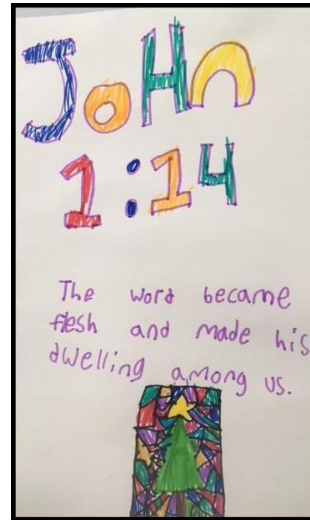 JoHn
1:14
The word became
flesh and made his
dwelling among us.